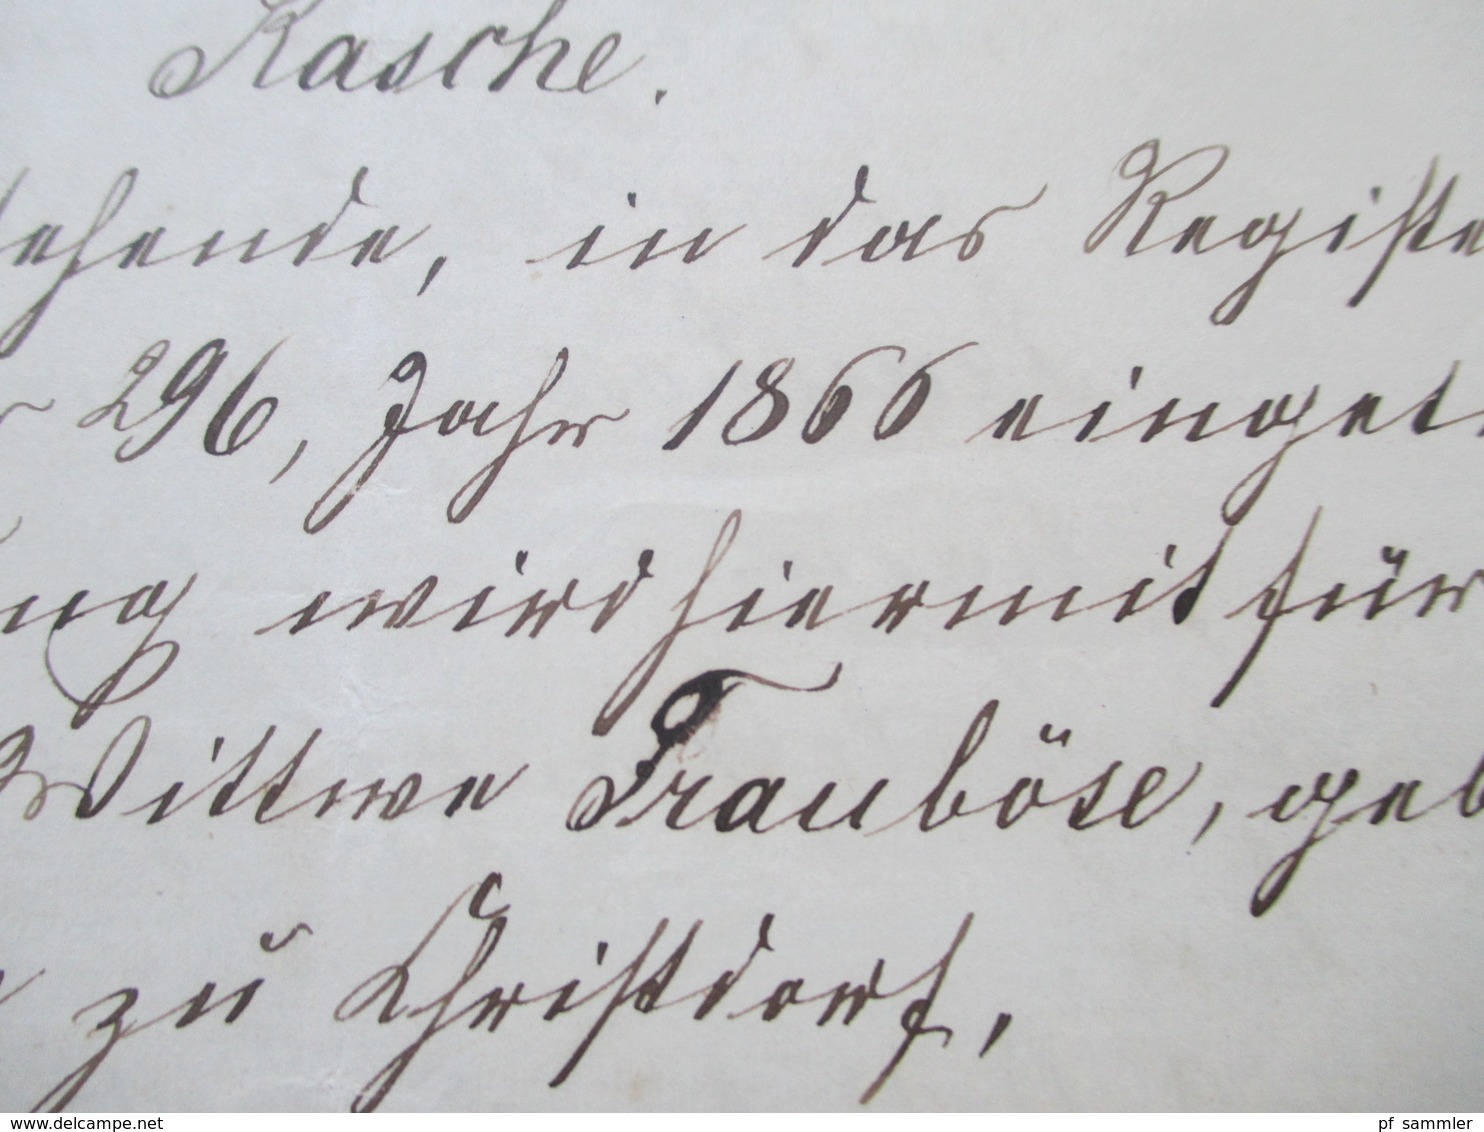 Rasche.
tehende, in das Registe
r 296, Jahr 1866 einget
ng wird hiermit für
Wittwe Trauböse, geb
zu Christdorf,
www.delcampe.net
pf_sammler